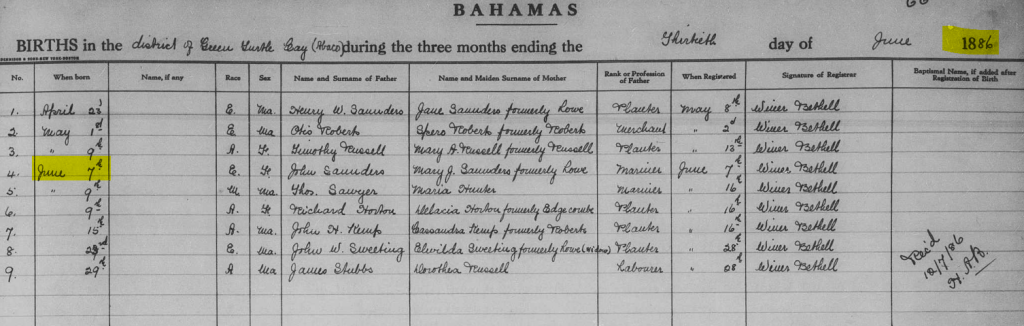 BAHAMAS
BIRTHS in the district of Green Turtle Cay (Abaco) during the three months ending the Thirtieth day of June 1886
No. When born Name, if any Race Sex Name and Surname of Father Name and Maiden Surname of Mother Rank or Profession of Father When Registered Signature of Registrar Baptismal Name, if added after Registration of Birth
1. April 23d E. Ma. Henry W. Saunders Jane Saunders formerly Lowe Planter May 8th Winer Bethell
2. May 1st E. Ma Otis Roberts Spero Roberts formerly Roberts Merchant " 2d Winer Bethell
3. " 9th A. Fe. Timothy Russell Mary A. Russell formerly Russell Planter " 13th Winer Bethell
4. June 7th E. Fe John Saunders Mary J. Saunders formerly Lowe Mariner June 7th Winer Bethell
5. " 9th M Ma. Thos. Sawyer Maria Hunter Mariner " 16th Winer Bethell
6. " 9th A. Fe Richard Horton Horton formerly Edgecombe Planter " 16th Winer Bethell
7. " 15th A. Ma. John H. Kemp Cassandra Kemp formerly Roberts Planter " 16th Winer Bethell
8. " E. Ma. John W. Sweeting Sweeting formerly Lowe (Widow) Planter " 28th Winer Bethell
9. " 29th A Ma James Stubbs Dorothea Russell Labourer " 08th Winer Bethell
Rec'd
12/7/86